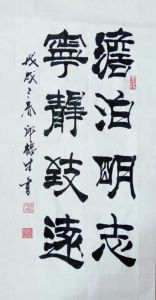 澹泊明志
寧静致遠
戊戌之春
書